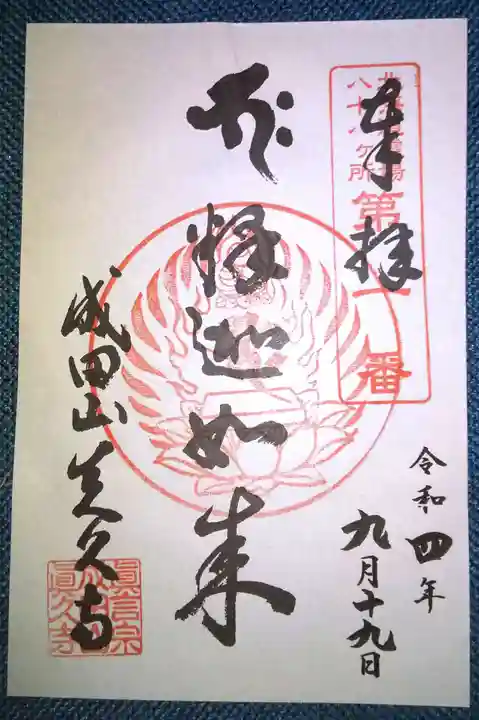 奉拝
八十八ヶ所
第
一番
令和四年
九月十九日
釋迦如来
成田山真久寺
眞言宗
眞久寺